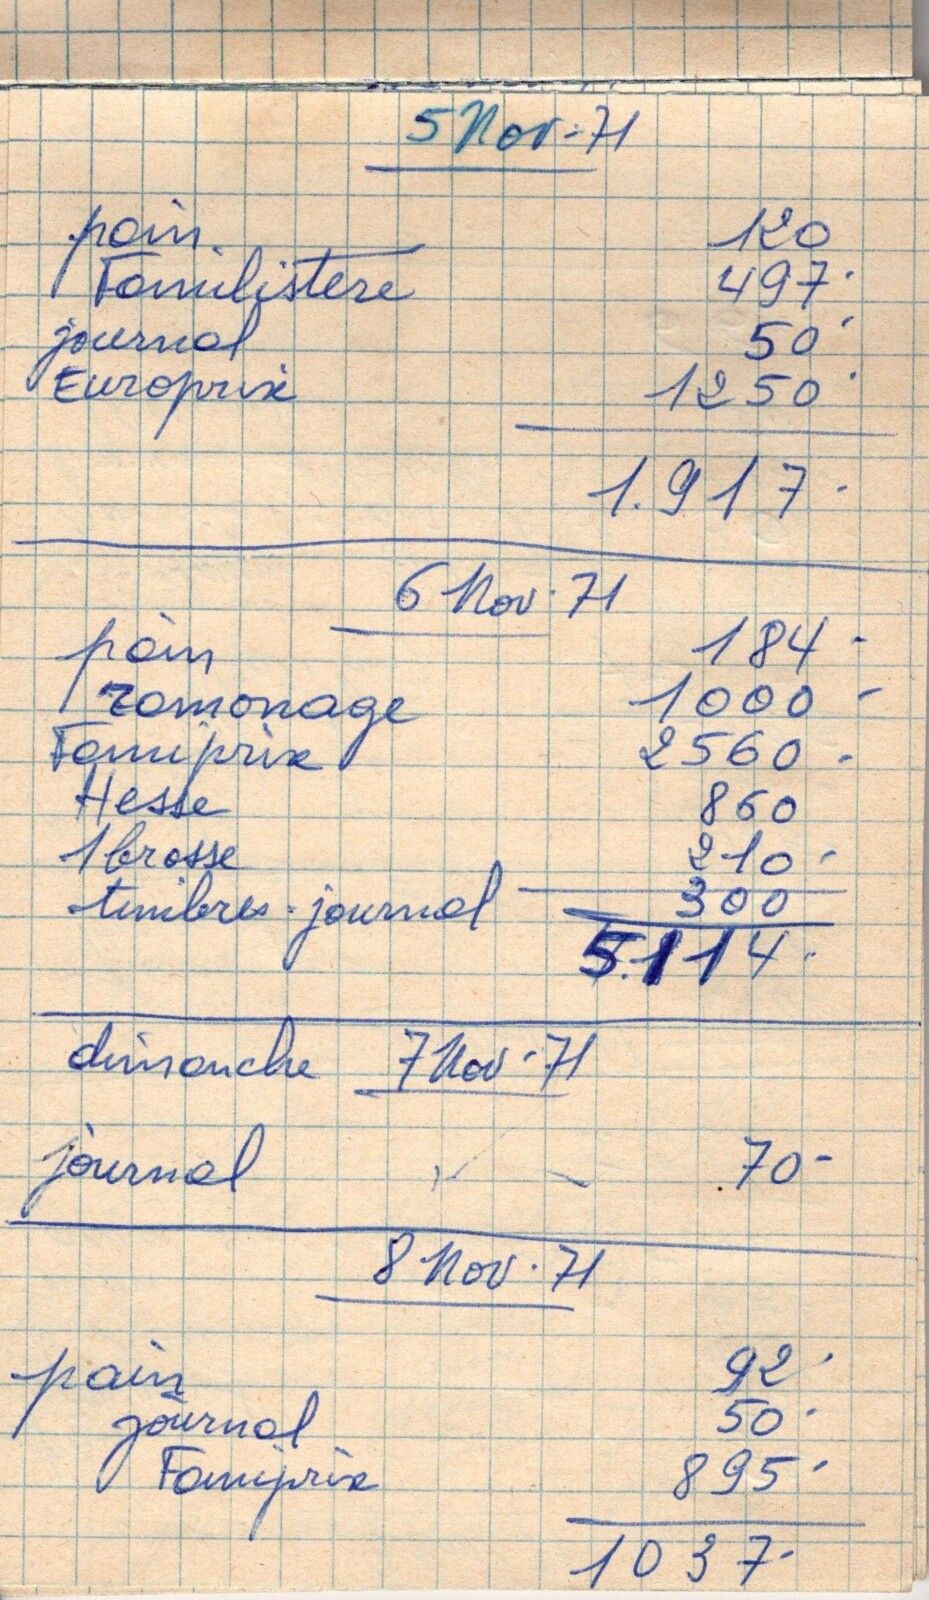 5 Nov. 71
pain 120
Familistere 497.
journal 50.
Europrix 1250.
1.917.
6 Nov. 71
pain 184-
ramonage 1000-
Famiprix 2560.
Hesse 860
1 brosse 210.
timbres. journal 300
5.114.
dimanche 7 Nov. 71
journal 70-
8 Nov. 71
pain 92.
journal 50.
Famiprix 895.
1037.